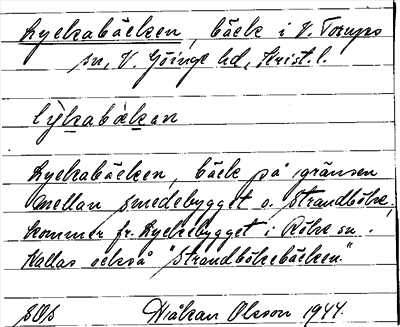 Lyckabäcken, bäck i V. Torups
sn, V. Göinge hd, Krist. l.
lỳkabàkan
Lyckabäcken, bäck på gränsen
mellan Smedebygget o. Strandböke,
kommer fr. Lyckebygget i Röke sn.
Kallas också "Strandbökebäcken."
sOs Håkan Olsson 1944.